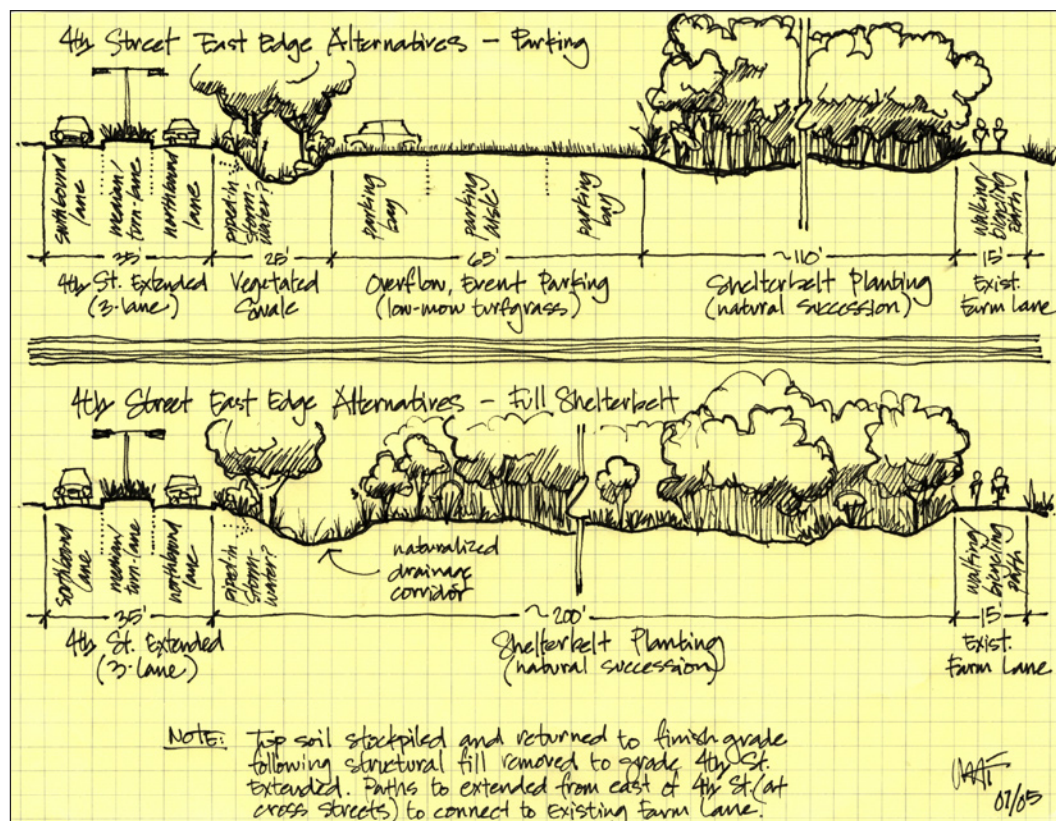 4th Street East Edge Alternatives - Parking
southbound
lane
median/
turn-lane
northbound
lane
piped-in
storm-
water?
parking
bay
parking
aisle
parking
bay
walking/
bicycling
path
35'
25'
65'
~110'
15'
4th St. Extended
(3-lane)
Vegetated
Swale
Overflow, Event Parking
(low-mow turfgrass)
Shelterbelt Planting
(natural succession)
Exist.
Farm Lane
4th Street East Edge Alternatives - Full Shelterbelt
southbound
lane
median/
turn-lane
northbound
lane
piped-in
storm-
water?
naturalized
drainage
corridor
walking/
bicycling
path
35'
~200'
15'
4th St. Extended
(3-lane)
Shelterbelt Planting
(natural succession)
Exist.
Farm Lane
NOTE: Top soil stockpiled and returned to finish grade
following structural fill removed to grade 4th St.
Extended. Paths to extended from east of 4th St. (at
cross streets) to connect to existing Farm Lane.
07/05